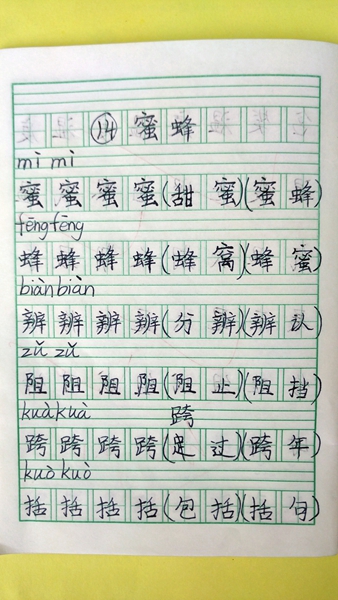 ⑭ 蜜蜂
mì mì
蜜蜜蜜蜜(甜蜜)(蜜蜂)
fēng fēng
蜂蜂蜂蜂(蜂窝)(蜂蜜)
biàn biàn
辨辨辨辨(分辨)(辨认)
zǔ zǔ
阻阻阻阻(阻止)(阻挡)
kuà kuà 跨
跨跨跨跨(足过)(跨年)
kuò kuò
括括括括(包括)(括句)